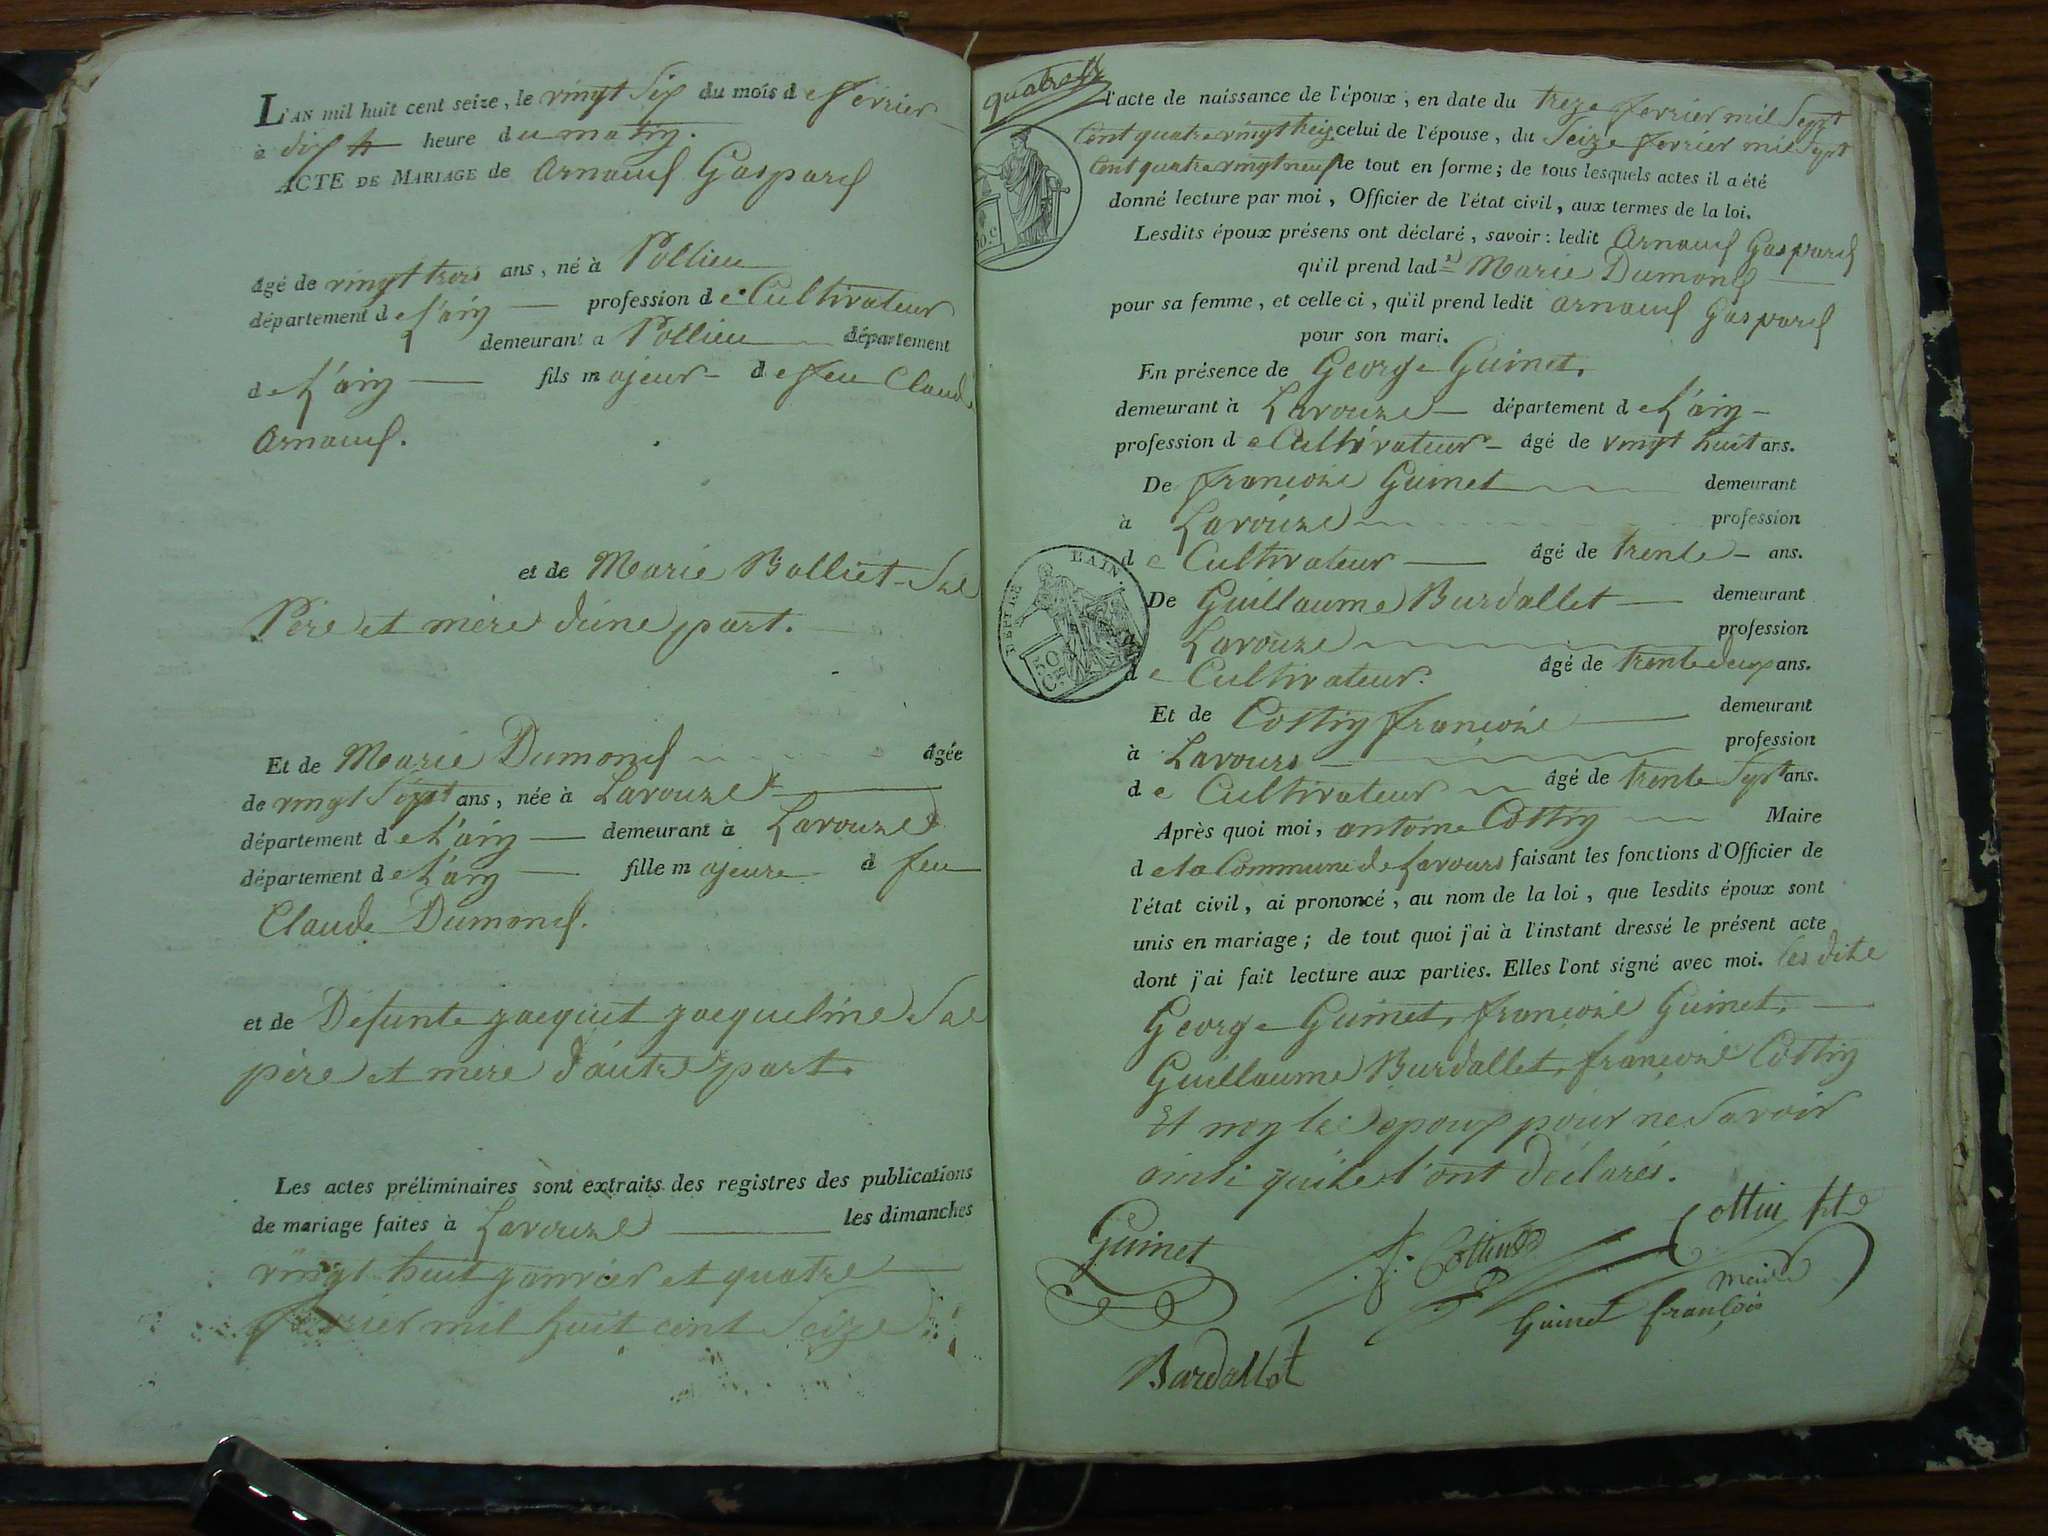 L'AN mil huit cent seize, le vingt Six du mois de fevrier
à dix heure du matin.
ACTE DE MARIAGE de Arnaud Gaspard
âgé de vingt trois ans, né à Pollieu
département de L'ain profession de Cultivateur
demeurant a Pollieu département
de L'ain fils majeur de feu Claude
Arnaud.
et de Marie Balliet Ses
Père et mère d'une part.
Et de Marie Dumond âgée
de vingt Sept ans, née à Lavourse
département de L'ain demeurant à Lavourse
département de L'ain fille majeure de feu
Claude Dumond.
et de Defunte jacquet jacqueline Ses
père et mère d'autre part.
Les actes préliminaires sont extraits des registres des publications
de mariage faites à Lavourse les dimanches
vingt huit janvier et quatre
fevrier mil huit cent Seize
l'acte de naissance de l'époux, en date du treze fevrier mil Sept
Cent quatre vingt treize celui de l'épouse, du Seize fevrier mil Sept
Cent quatre vingt neuf le tout en forme; de tous lesquels actes il a été
donné lecture par moi, Officier de l'état civil, aux termes de la loi.
Lesdits époux présens ont déclaré, savoir: ledit Arnaud Gaspard
qu'il prend lad Marie Dumond
pour sa femme, et celle ci, qu'il prend ledit arnaud Gaspard
pour son mari.
En présence de George Guinet.
demeurant à Lavourse département de L'ain
profession de Cultivateur âgé de vingt huit ans.
De françoise Guinet demeurant
à Lavourse profession
de Cultivateur âgé de trente ans.
DEPT DE L'AIN.
50 Cs
De Guillaume Burdallet demeurant
à Lavourse profession
de Cultivateur. âgé de trente deux ans.
Et de Cottin françoise demeurant
à Lavours profession
de Cultivateur âgé de trente Sept ans.
Après quoi moi, antoine Cottin Maire
de la Commune de Lavours faisant les fonctions d'Officier de
l'état civil, ai prononcé, au nom de la loi, que lesdits époux sont
unis en mariage; de tout quoi j'ai à l'instant dressé le présent acte
dont j'ai fait lecture aux parties. Elles l'ont signé avec moi. les dite
George Guinet, françoise Guinet,
Guillaume Burdallet, françoise Cottin
Et non les epoux pour ne Savoir
ainsi qu'ils l'ont déclarés.
Guinet
f. Cottin
Cottin
maire
Guinet françois
Bardallet